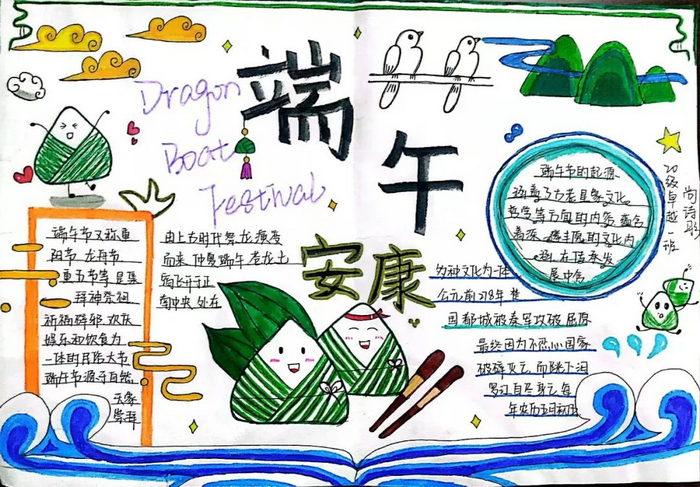 Dragon
Boat
Festival
端午
安康
端午节又称重
阳节 龙舟节
重五节等 是集
拜神祭祖
祈福辟邪 欢庆
娱乐和饮食为
一体的民俗大节
端午节源于自然
天象
崇拜
由上古时代祭龙演变
而来 仲夏端午 苍龙七
宿飞升于正
南中央 处在
端午节的起源
涵盖了古老星象文化
哲学等方面的内容 蕴含
着深 丰厚的文化内
涵
展中杂
为种文化为一体
公元前278年 楚
国都城被秦军攻破 屈原
最终因为不忍心国家
破碎灭亡 而跳下汨
罗江自尽身亡 每
20级卓越 班